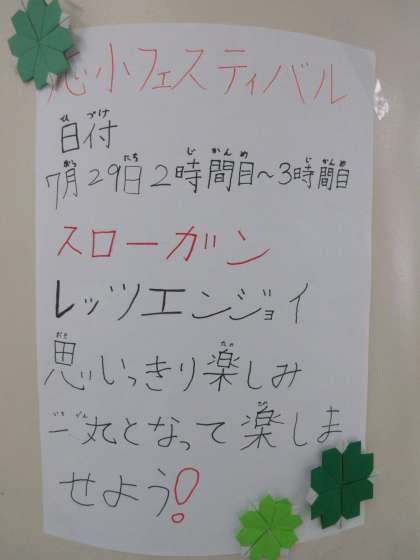 小フェスティバル
ひ づけ
日付
がつ にち じ かん め じ かん め
7月29日2時間目～3時間目
スローガン
レッツエンジョイ
おも たの
思いっきり楽しみ
いち がん たの
一丸となって楽しま
せよう!